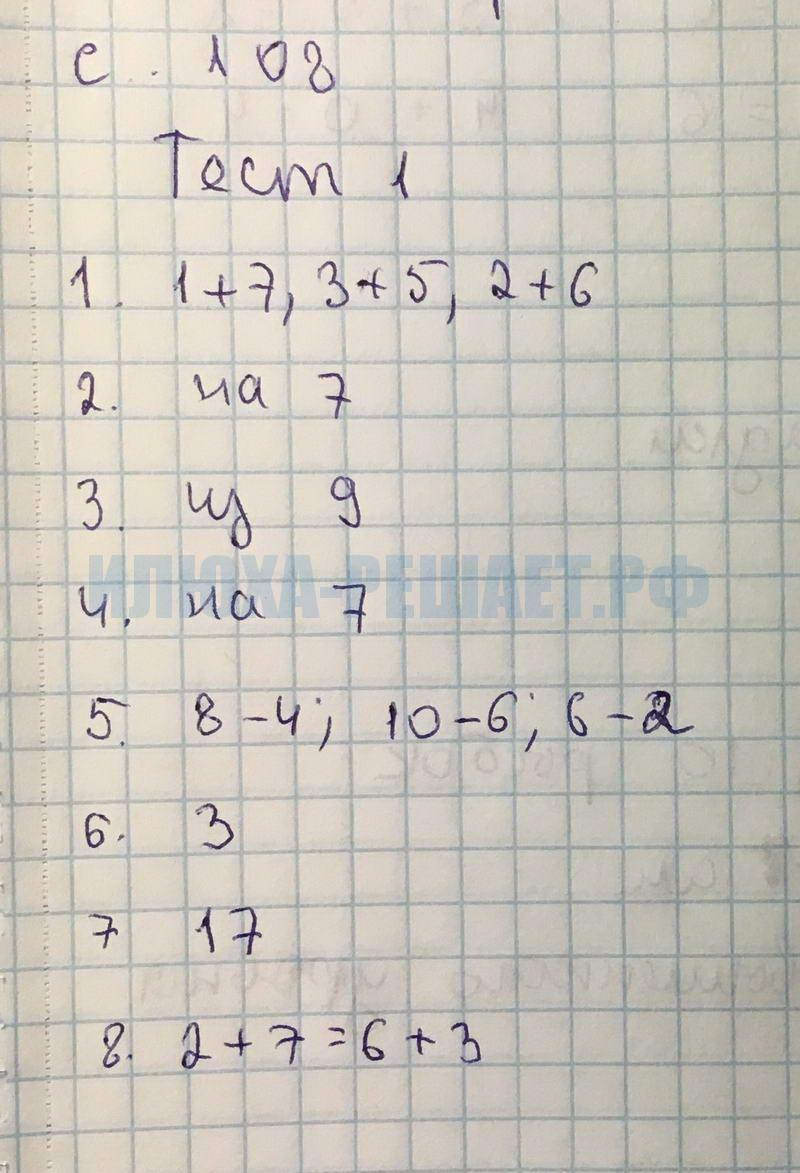 с. 108
Тест 1
1. 1+7, 3+5, 2+6
2. на 7
3. из 9
ИЛЮХА-РЕШАЕТ.РФ
4. на 7
5. 8-4; 10-6; 6-2
6. 3
7 17
8. 2+7=6+3